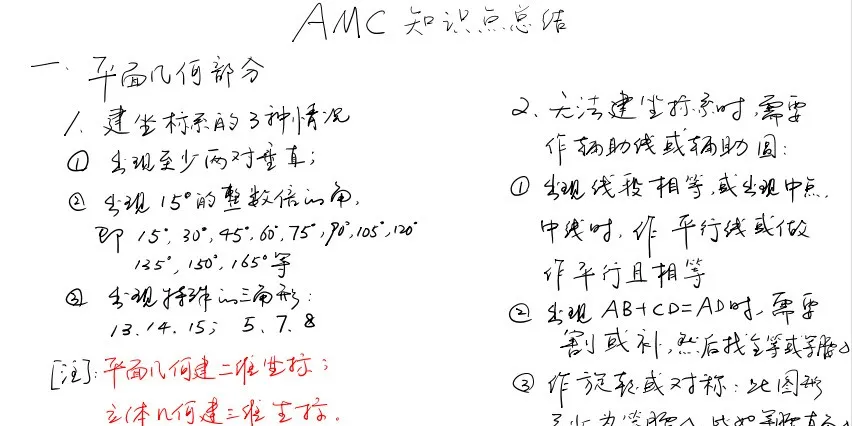 AMC 知识点总结
一. 平面几何部分
1. 建坐标系的3种情况
① 出现至少两对垂直;
② 出现15°的整数倍的角,
即 15°, 30°, 45°, 60°, 75°, 90°, 105°, 120°
135°, 150°, 165°等
③ 出现特殊的三角形:
13. 14. 15; 5、7、8
[注]: 平面几何建二维坐标;
立体几何建三维坐标。
2、无法建坐标系时, 需要
作辅助线或辅助圆:
① 出现线段相等, 或出现中点,
中线时, 作平行线或做
作平行且相等
② 出现 AB+CD=AD时, 需要
割或补, 然后找全等或等腰△
③ 作旋转或对称: 此图形